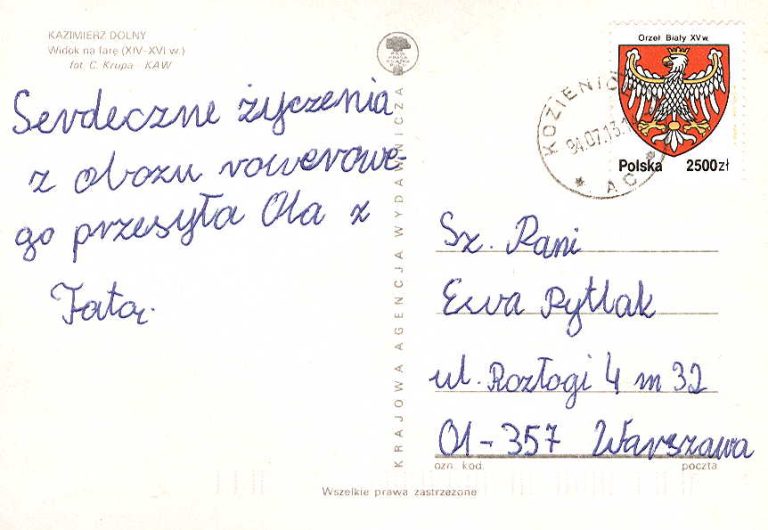 KAZIMIERZ DOLNY
Widok na farę (XIV-XVI w.)
fot. C. Krupa - KAW
Serdeczne życzenia
z obozu rowerowe-
go przesyła Ola z
Tatą.
KRAJOWA AGENCJA WYDAWNICZA
Orzeł Biały XV w.
Polska 2500zł
KOZIENIC
94.07.13
* AC
Sz. Pani
Ewa Pytlak
ul. Rozłogi 4 m 32
01-357 Warszawa
ozn. kod. poczta
Wszelkie prawa zastrzeżone